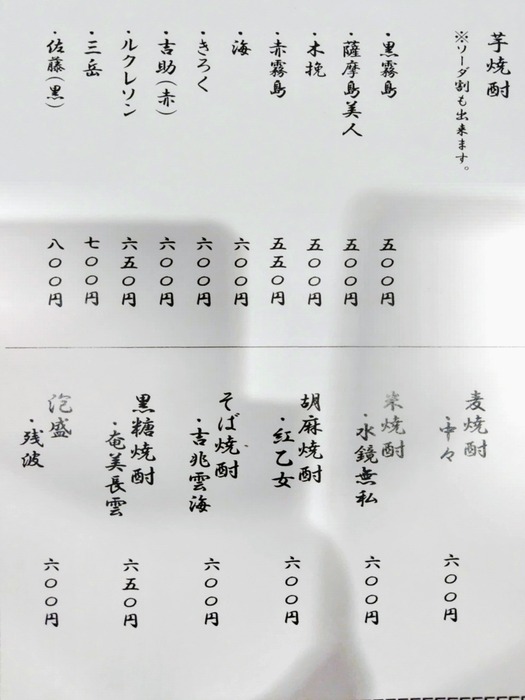 芋焼酎
※ソーダ割も出来ます。
・黒霧島 五〇〇円
・薩摩島美人 五〇〇円
・木挽 五〇〇円
・赤霧島 五五〇円
・海 六〇〇円
・きろく 六〇〇円
・吉助(赤) 六〇〇円
・ルクレソン 六五〇円
・三岳 七〇〇円
・佐藤(黒) 八〇〇円
麦焼酎
・中々 六〇〇円
米焼酎
・水鏡無私 六〇〇円
胡麻焼酎
・紅乙女 六〇〇円
そば焼酎
・吉兆雲海 六〇〇円
黒糖焼酎
・奄美長雲 六五〇円
泡盛
・残波 六〇〇円